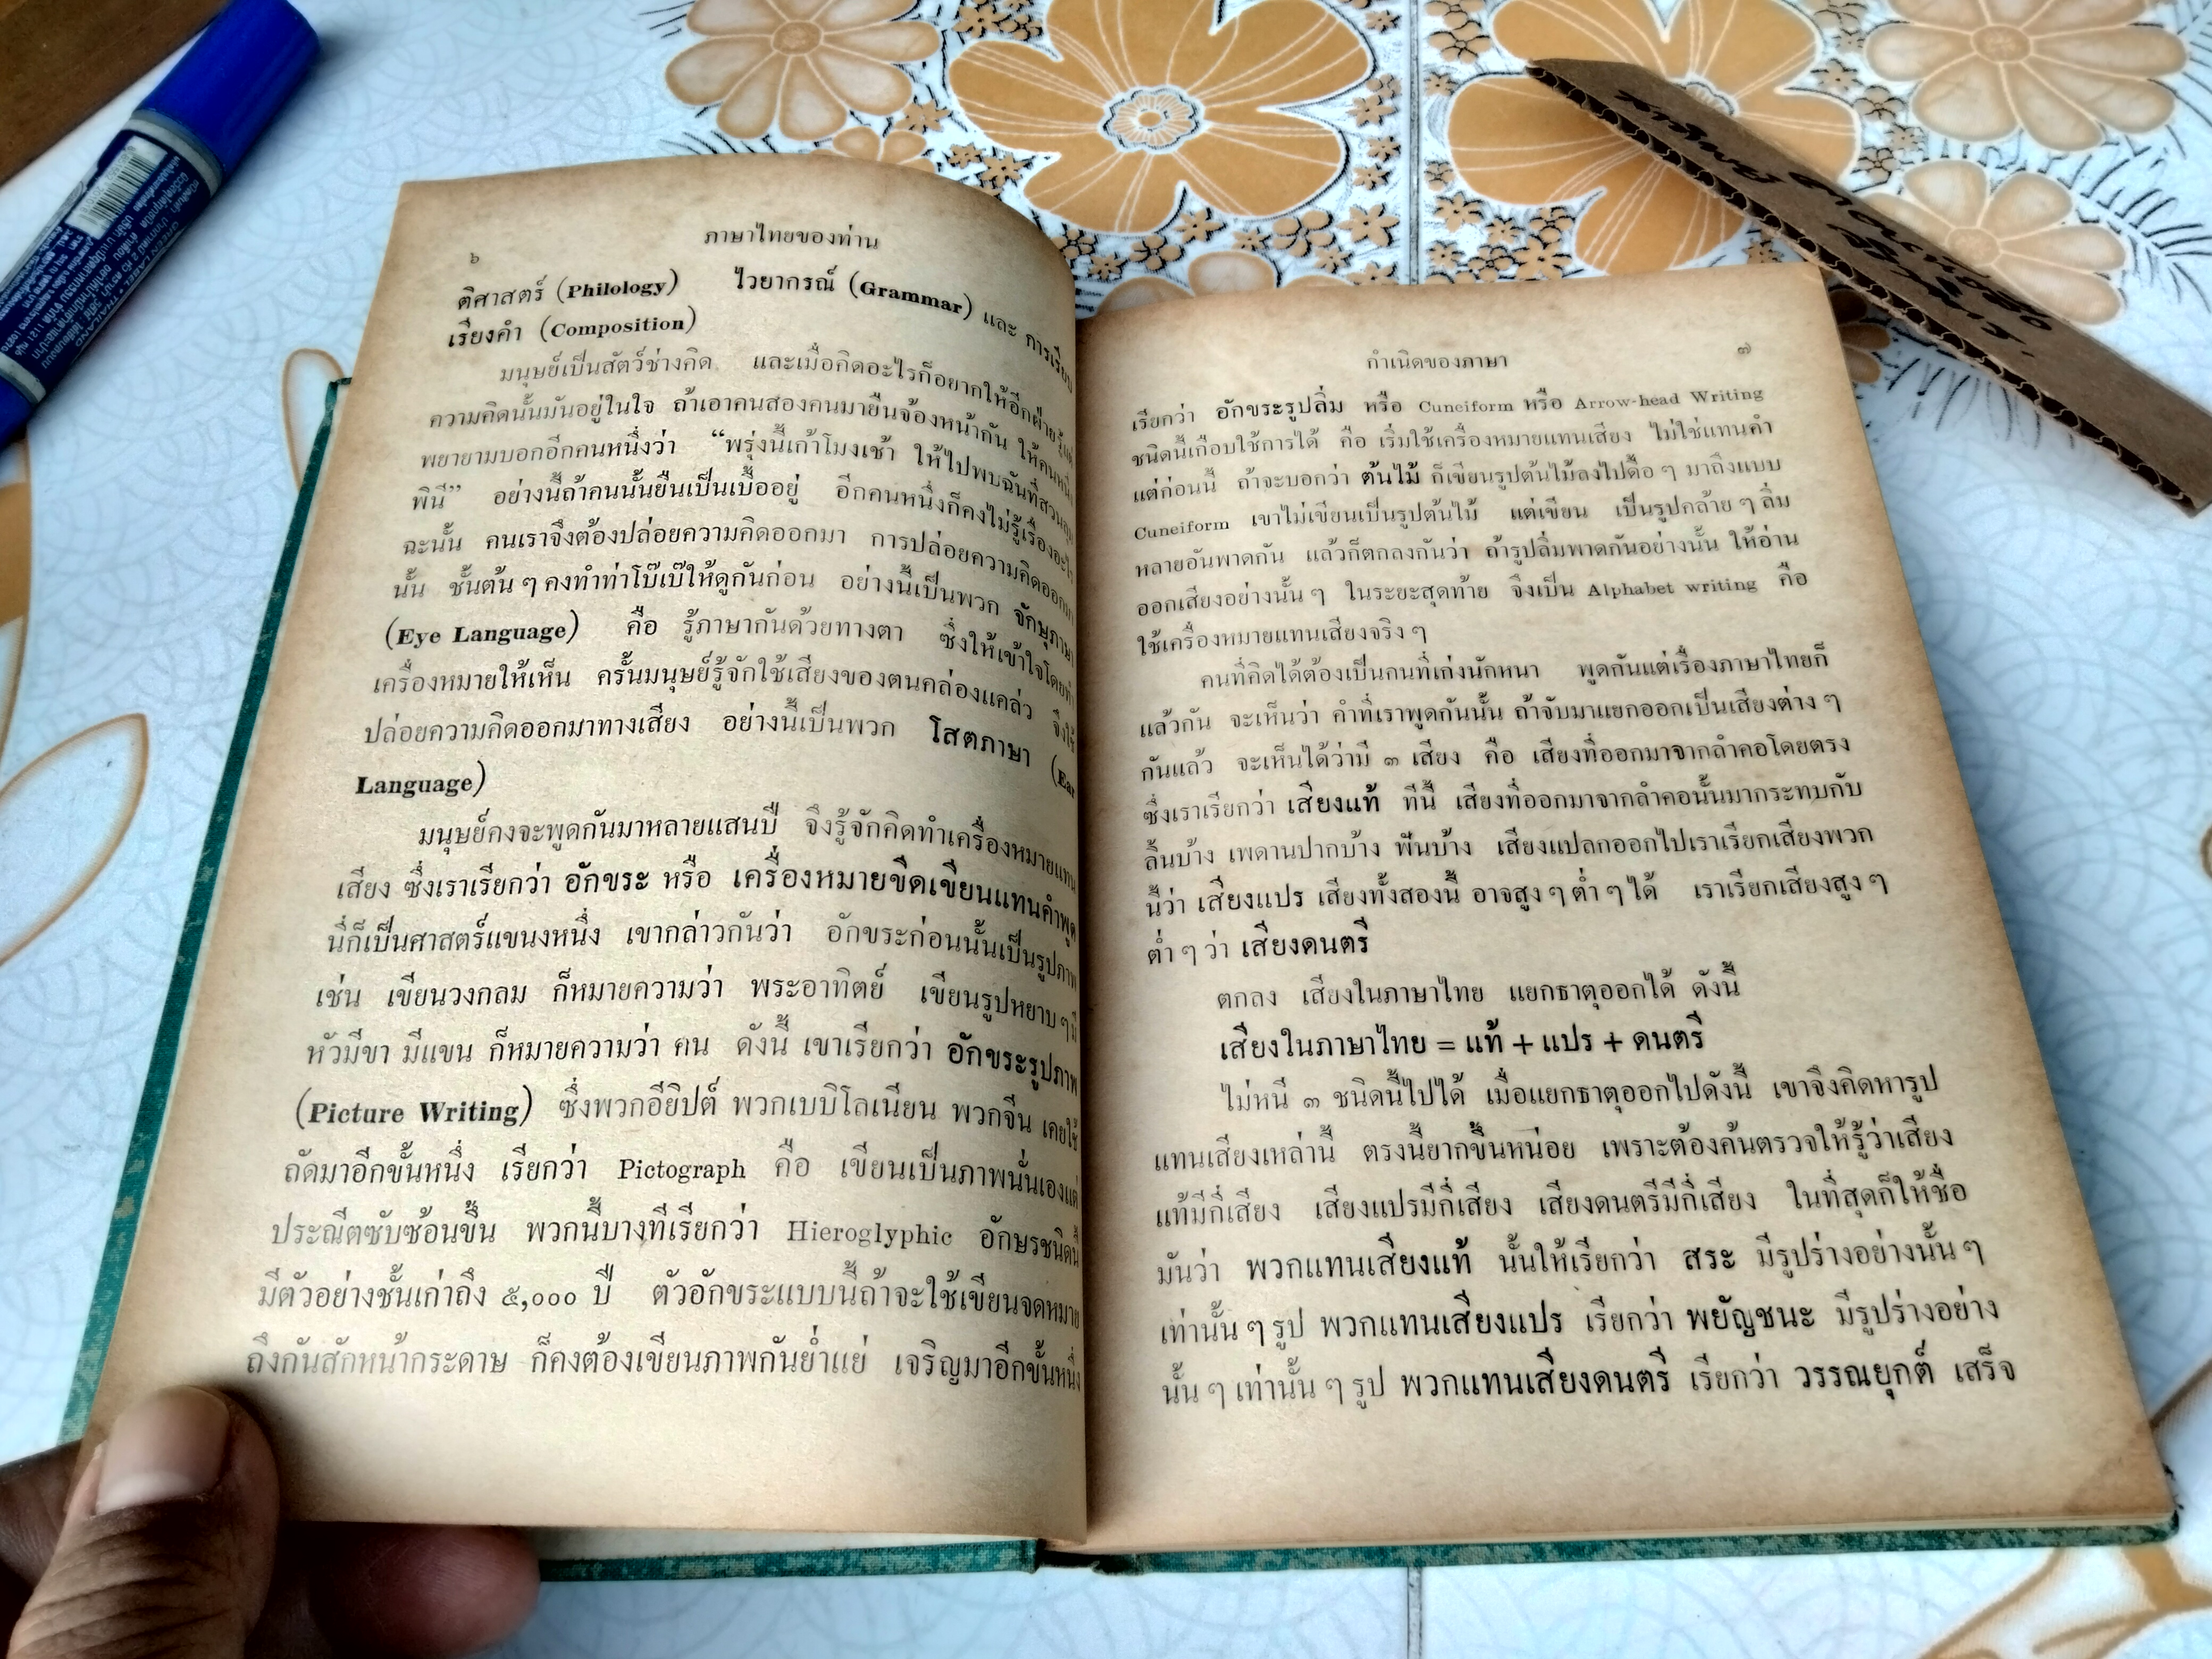 ๖
ภาษาไทยของท่าน
ติศาสตร์ (Philology) ไวยากรณ์ (Grammar) และ การเรียบ
เรียงคำ (Composition)
มนุษย์เป็นสัตว์ช่างคิด และเมื่อคิดอะไรก็อยากให้อีกฝ่ายรู้
ความคิดนั้นมันอยู่ในใจ ถ้าเอาคนสองคนมายืนจ้องหน้ากัน ให้คนหนึ่ง
พยายามบอกอีกคนหนึ่งว่า “พรุ่งนี้เก้าโมงเช้า ให้ไปพบฉันที่สวนลุม
พินี” อย่างนี้ถ้าคนนั้นยืนเป็นเบื้ออยู่ อีกคนหนึ่งก็คงไม่รู้เรื่องอะไร
ฉะนั้น คนเราจึงต้องปล่อยความคิดออกมา การปล่อยความคิดออกมา
นั้น ชั้นต้น ๆ คงทำท่าโบ๊เบ๊ให้ดูกันก่อน อย่างนี้เป็นพวก จักษุภาษา
(Eye Language) คือ รู้ภาษากันด้วยทางตา ซึ่งให้เข้าใจโดยทำ
เครื่องหมายให้เห็น ครั้นมนุษย์รู้จักใช้เสียงของตนคล่องแคล่ว จึงใช้
ปล่อยความคิดออกมาทางเสียง อย่างนี้เป็นพวก โสตภาษา (Ear
Language)
มนุษย์คงจะพูดกันมาหลายแสนปี จึงรู้จักคิดทำเครื่องหมายแทน
เสียง ซึ่งเราเรียกว่า อักขระ หรือ เครื่องหมายขีดเขียนแทนคำพูด
นี่ก็เป็นศาสตร์แขนงหนึ่ง เขากล่าวกันว่า อักขระก่อนนั้นเป็นรูปภาพ
เช่น เขียนวงกลม ก็หมายความว่า พระอาทิตย์ เขียนรูปหยาบ ๆ มี
หัวมีขา มีแขน ก็หมายความว่า คน ดังนี้ เขาเรียกว่า อักขระรูปภาพ
(Picture Writing) ซึ่งพวกอียิปต์ พวกเบบิโลเนียน พวกจีน เคยใช้
ถัดมาอีกขั้นหนึ่ง เรียกว่า Pictograph คือ เขียนเป็นภาพนั่นเองแต่
ประณีตซับซ้อนขึ้น พวกนี้บางทีเรียกว่า Hieroglyphic อักษรชนิดนี้
มีตัวอย่างชั้นเก่าถึง ๕,๐๐๐ ปี ตัวอักขระแบบนี้ถ้าจะใช้เขียนจดหมาย
ถึงกันสักหน้ากระดาษ ก็คงต้องเขียนภาพกันย่ำแย่ เจริญมาอีกขั้นหนึ่ง
กำเนิดของภาษา
๗
เรียกว่า อักขระรูปลิ่ม หรือ Cuneiform หรือ Arrow-head Writing
ชนิดนี้เกือบใช้การได้ คือ เริ่มใช้เครื่องหมายแทนเสียง ไม่ใช่แทนคำ
แต่ก่อนนี้ ถ้าจะบอกว่า ต้นไม้ ก็เขียนรูปต้นไม้ลงไปดื้อ ๆ มาถึงแบบ
Cuneiform เขาไม่เขียนเป็นรูปต้นไม้ แต่เขียน เป็นรูปคล้าย ๆ ลิ่ม
หลายอันพาดกัน แล้วก็ตกลงกันว่า ถ้ารูปลิ่มพาดกันอย่างนั้น ให้อ่าน
ออกเสียงอย่างนั้น ๆ ในระยะสุดท้าย จึงเป็น Alphabet writing คือ
ใช้เครื่องหมายแทนเสียงจริง ๆ
คนที่คิดได้ต้องเป็นคนที่เก่งนักหนา พูดกันแต่เรื่องภาษาไทยก็
แล้วกัน จะเห็นว่า คำที่เราพูดกันนั้น ถ้าจับมาแยกออกเป็นเสียงต่าง ๆ
กันแล้ว จะเห็นได้ว่ามี ๓ เสียง คือ เสียงที่ออกมาจากลำคอโดยตรง
ซึ่งเราเรียกว่า เสียงแท้ ทีนี้ เสียงที่ออกมาจากลำคอนั้นมากระทบกับ
ลิ้นบ้าง เพดานปากบ้าง ฟันบ้าง เสียงแปลกออกไปเราเรียกเสียงพวก
นี้ว่า เสียงแปร เสียงทั้งสองนี้ อาจสูง ๆ ต่ำ ๆ ได้ เราเรียกเสียงสูง ๆ
ต่ำ ๆ ว่า เสียงดนตรี
ตกลง เสียงในภาษาไทย แยกธาตุออกได้ ดังนี้
เสียงในภาษาไทย = แท้ + แปร + ดนตรี
ไม่หนี ๓ ชนิดนี้ไปได้ เมื่อแยกธาตุออกไปดังนี้ เขาจึงคิดหารูป
แทนเสียงเหล่านี้ ตรงนี้ยากขึ้นหน่อย เพราะต้องค้นตรวจให้รู้ว่าเสียง
แท้มีกี่เสียง เสียงแปรมีกี่เสียง เสียงดนตรีมีกี่เสียง ในที่สุดก็ให้ชื่อ
มันว่า พวกแทนเสียงแท้ นั้นให้เรียกว่า สระ มีรูปร่างอย่างนั้น ๆ
เท่านั้น ๆ รูป พวกแทนเสียงแปร เรียกว่า พยัญชนะ มีรูปร่างอย่าง
นั้น ๆ เท่านั้น ๆ รูป พวกแทนเสียงดนตรี เรียกว่า วรรณยุกต์ เสร็จ